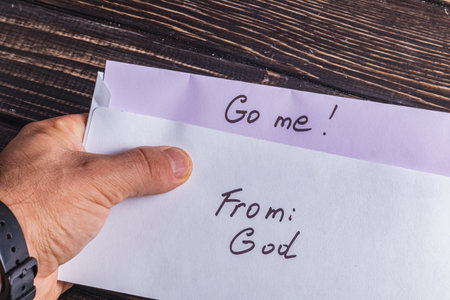 Go me!
From:
God